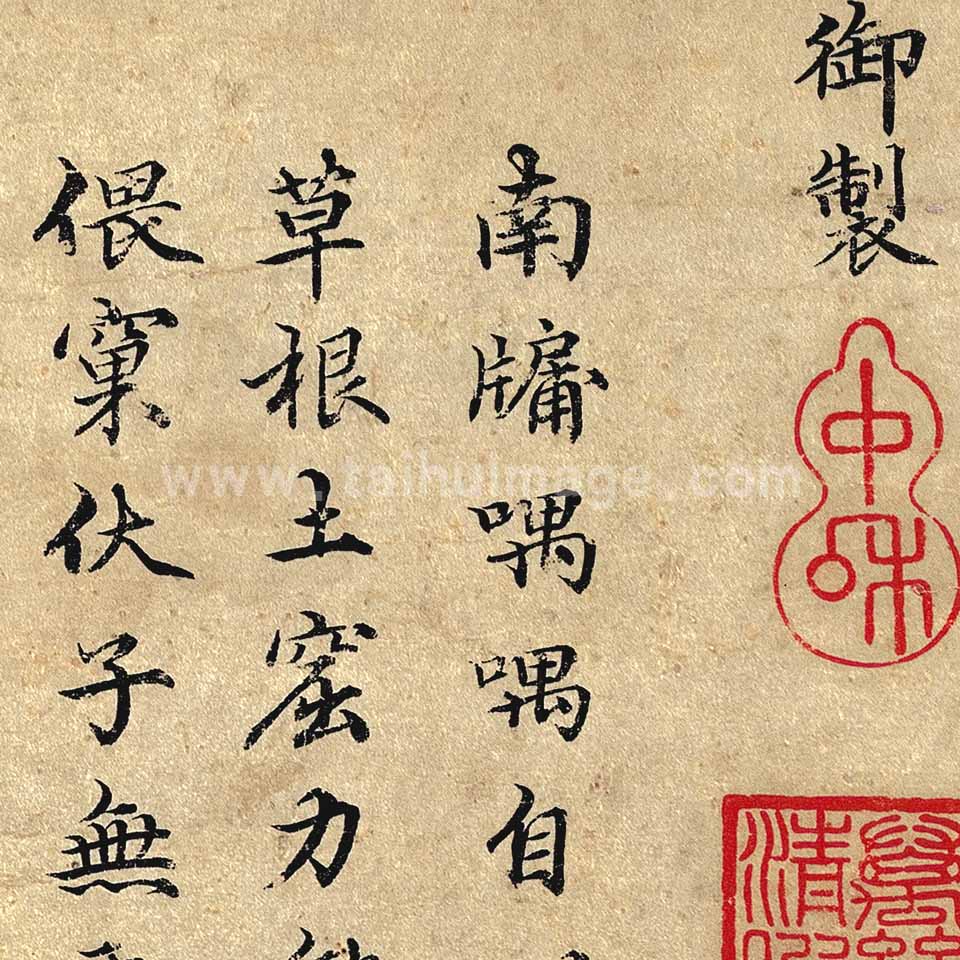 御製
中和
南牖喁喁自
草根土窟力
偎窠伏子無
www.taihuimage.com